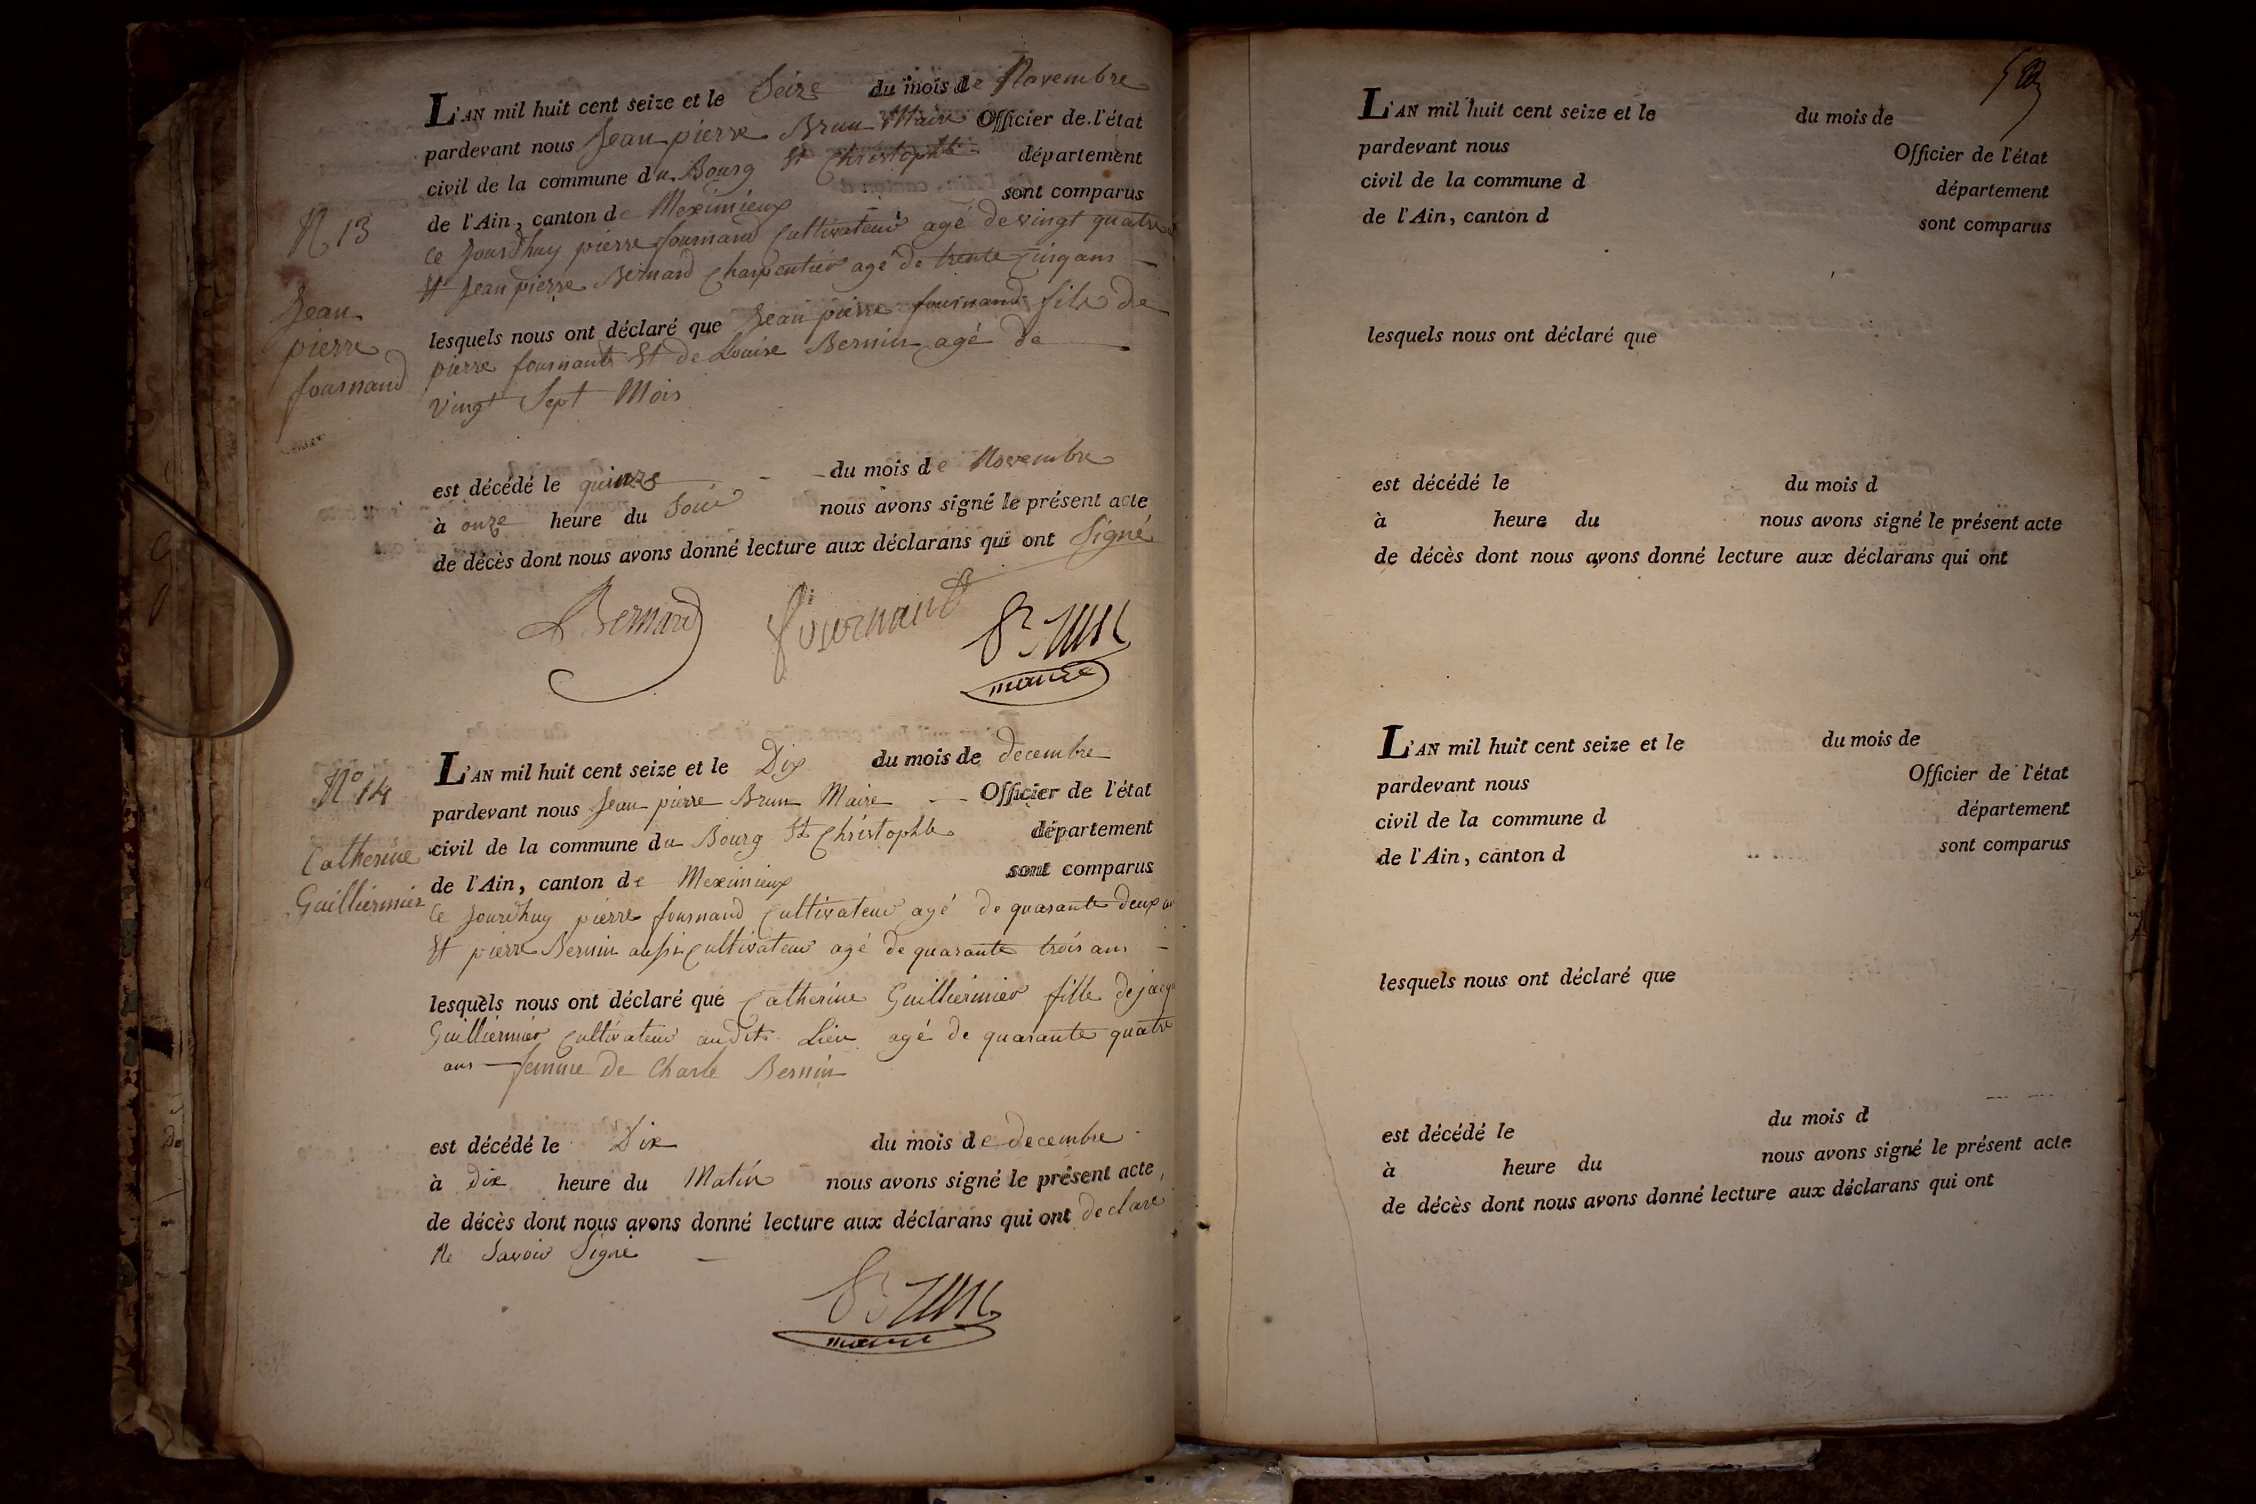 L'AN mil huit cent seize et le Seize du mois de Novembre
pardevant nous Jean pierre Brun Maire Officier de l'état
civil de la commune du Bourg St Christophle département
de l'Ain, canton de Meximieux sont comparus
N 13
ce Jourdhuy pierre fournand Cultivateur agé de vingt quatre
Et Jean pierre Bernard Charpentier agé de trente Cinq ans
Jean
pierre
fournand
lesquels nous ont déclaré que Jean pierre fournand fils de
pierre fournand Et de Louise Bernin agé de
vingt Sept Mois
est décédé le quinze du mois de Novembre
à onze heure du Soir nous avons signé le présent acte
de décès dont nous avons donné lecture aux déclarans qui ont Signé
Bernard fournand Brun
maire
L'AN mil huit cent seize et le Dix du mois de decembre
pardevant nous Jean pierre Brun Maire Officier de l'état
civil de la commune du Bourg St Christophle département
de l'Ain, canton de Meximieux sont comparus
No 14
Catherine
Guilliermier
ce Jourdhuy pierre fournand Cultivateur agé de quarante deux
Et pierre Bernin aussi Cultivateur agé de quarante trois ans
lesquels nous ont déclaré que Catherine Guilliermier fille de jacq
Guilliermier Cultivateur audit Lieu agé de quarante quatre
ans femme de Charle Bernin
est décédé le Dix du mois de decembre
à dix heure du Matin nous avons signé le présent acte
de décès dont nous avons donné lecture aux déclarans qui ont declaré
Ne Savoir Signé
Brun
maire
L'AN mil huit cent seize et le du mois de
pardevant nous Officier de l'état
civil de la commune d département
de l'Ain, canton d sont comparus
lesquels nous ont déclaré que
est décédé le du mois d
à heure du nous avons signé le présent acte
de décès dont nous avons donné lecture aux déclarans qui ont
L'AN mil huit cent seize et le du mois de
pardevant nous Officier de l'état
civil de la commune d département
de l'Ain, canton d sont comparus
lesquels nous ont déclaré que
est décédé le du mois d
à heure du nous avons signé le présent acte
de décès dont nous avons donné lecture aux déclarans qui ont